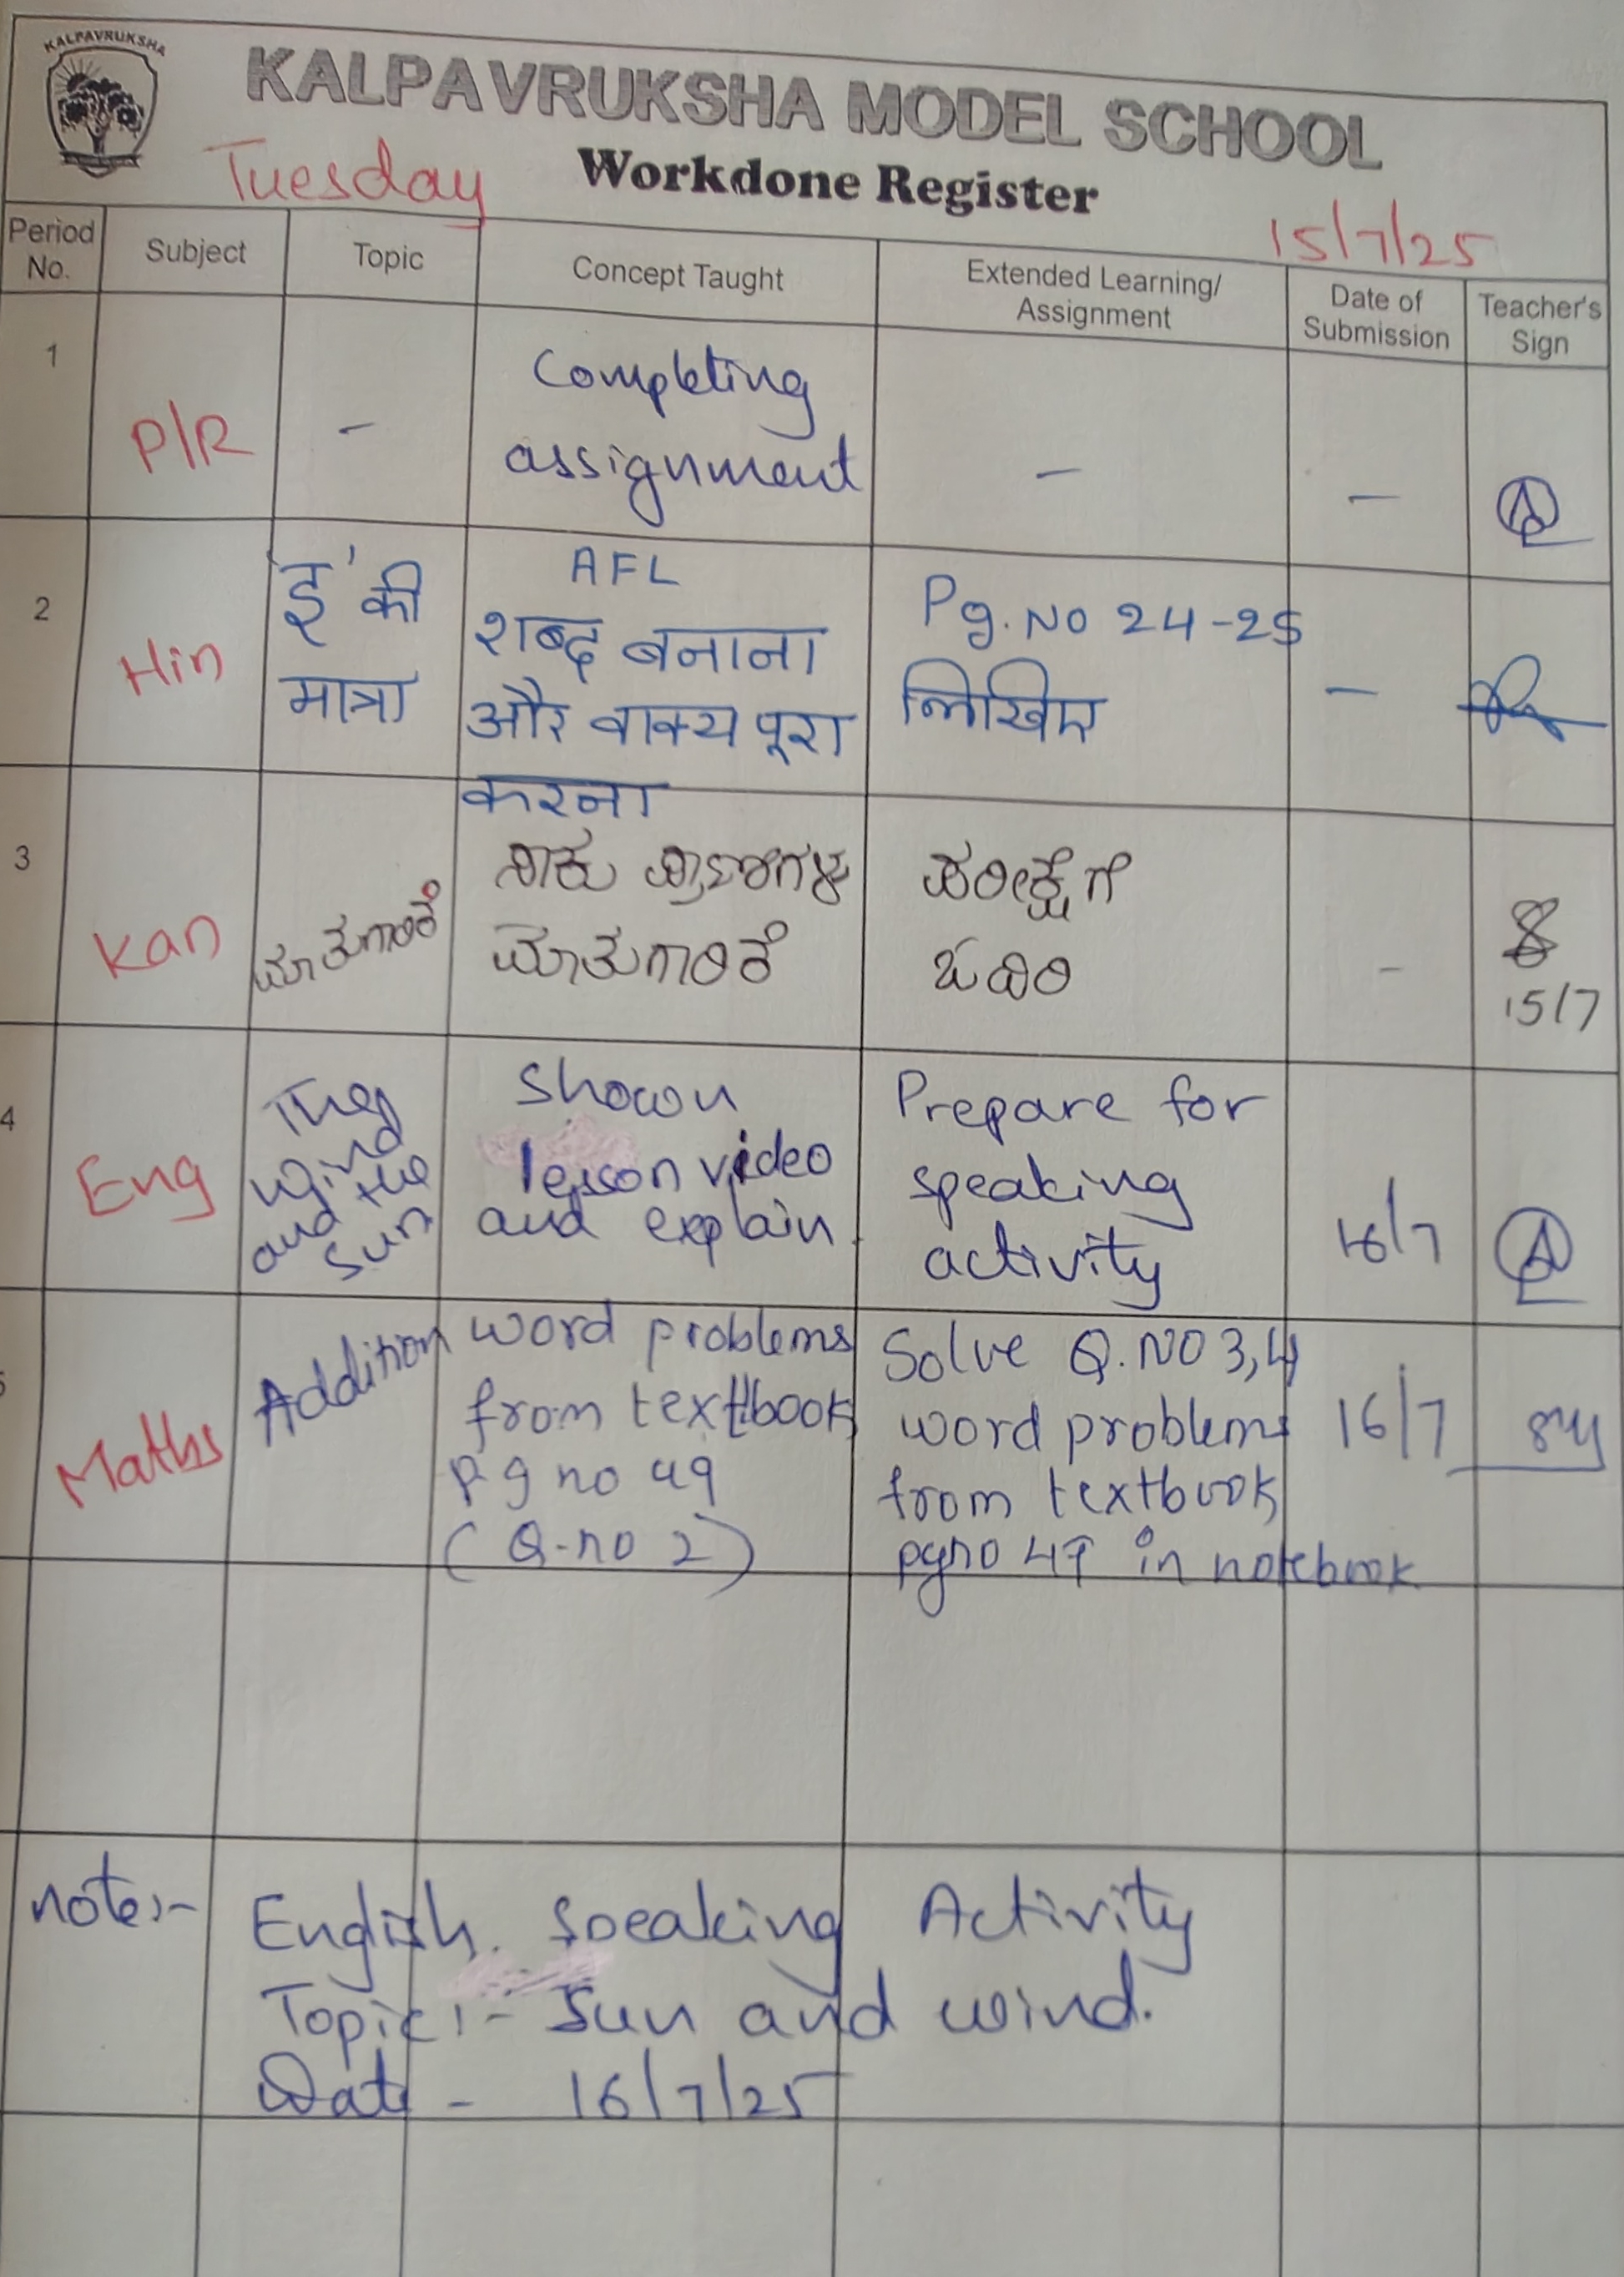 KALPAVRUKSHA
KALPAVRUKSHA MODEL SCHOOL
Tuesday
Workdone Register
15/7/25
Period No.
Subject
Topic
Concept Taught
Extended Learning/
Assignment
Date of
Submission
Teacher's
Sign
1
P/R
-
Completing
assignment
-
-
2
Hin
'इ' की
मात्रा
AFL
शब्द बनाना
और वाक्य पूरा
करना
Pg. No 24-25
लिखिए
-
3
Kan
ಮಾತುಗಾರಿಕೆ
ಸಾಕು ಪ್ರಾಣಿಗಳು
ಮಾತುಗಾರಿಕೆ
ಪರೀಕ್ಷೆಗೆ
ಓದಿರಿ
-
15/7
4
Eng
The
wind
and the
sun
Shown
lesson video
and explain.
Prepare for
speaking
activity
16/7
5
Maths
Addition
word problems
from textbook
Pg no 49
(Q.no 2)
Solve Q.NO 3,4
word problems
from textbook
pgno 49 in notebook
16/7
note:-
English speaking Activity
Topic:- Sun and wind.
Date - 16/7/25